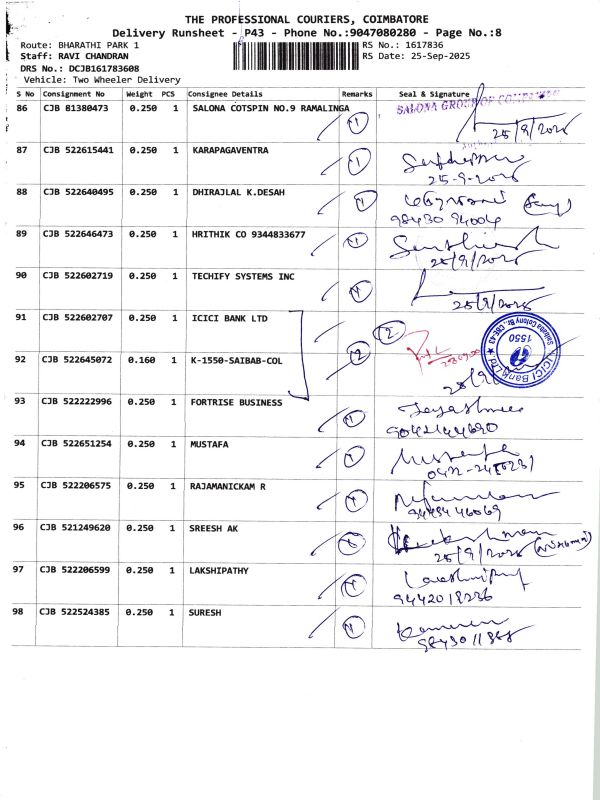 THE PROFESSIONAL COURIERS, COIMBATORE
Delivery Runsheet - P43 - Phone No.:9047080280 - Page No.:8
Route: BHARATHI PARK 1
RS No.: 1617836
Staff: RAVI CHANDRAN
RS Date: 25-Sep-2025
DRS No.: DCJB161783608
Vehicle: Two Wheeler Delivery
S No Consignment No Weight PCS Consignee Details Remarks Seal & Signature
86 CJB 81380473 0.250 1 SALONA COTSPIN NO.9 RAMALINGA 1
SALONA GROUP OF
25/9/2025
87 CJB 522615441 0.250 1 KARAPAGAVENTRA 1
25-9-2025
88 CJB 522640495 0.250 1 DHIRAJLAL K.DESAH 1
98430 94004
89 CJB 522646473 0.250 1 HRITHIK CO 9344833677 1
25/9/2025
90 CJB 522602719 0.250 1 TECHIFY SYSTEMS INC 1
25/9/2025
91 CJB 522602707 0.250 1 ICICI BANK LTD 2
92 CJB 522645072 0.160 1 K-1550-SAIBAB-COL 2
ICICI Bank Ltd.
Saibaba Colony Br. CBE-43
1550
93 CJB 522222996 0.250 1 FORTRISE BUSINESS 1
Jayashree
9042144690
94 CJB 522651254 0.250 1 MUSTAFA 1
Mustafa
95 CJB 522206575 0.250 1 RAJAMANICKAM R 1
9449446069
96 CJB 521249620 0.250 1 SREESH AK
25/9/2025
97 CJB 522206599 0.250 1 LAKSHIPATHY 1
9442018236
98 CJB 522524385 0.250 1 SURESH 1